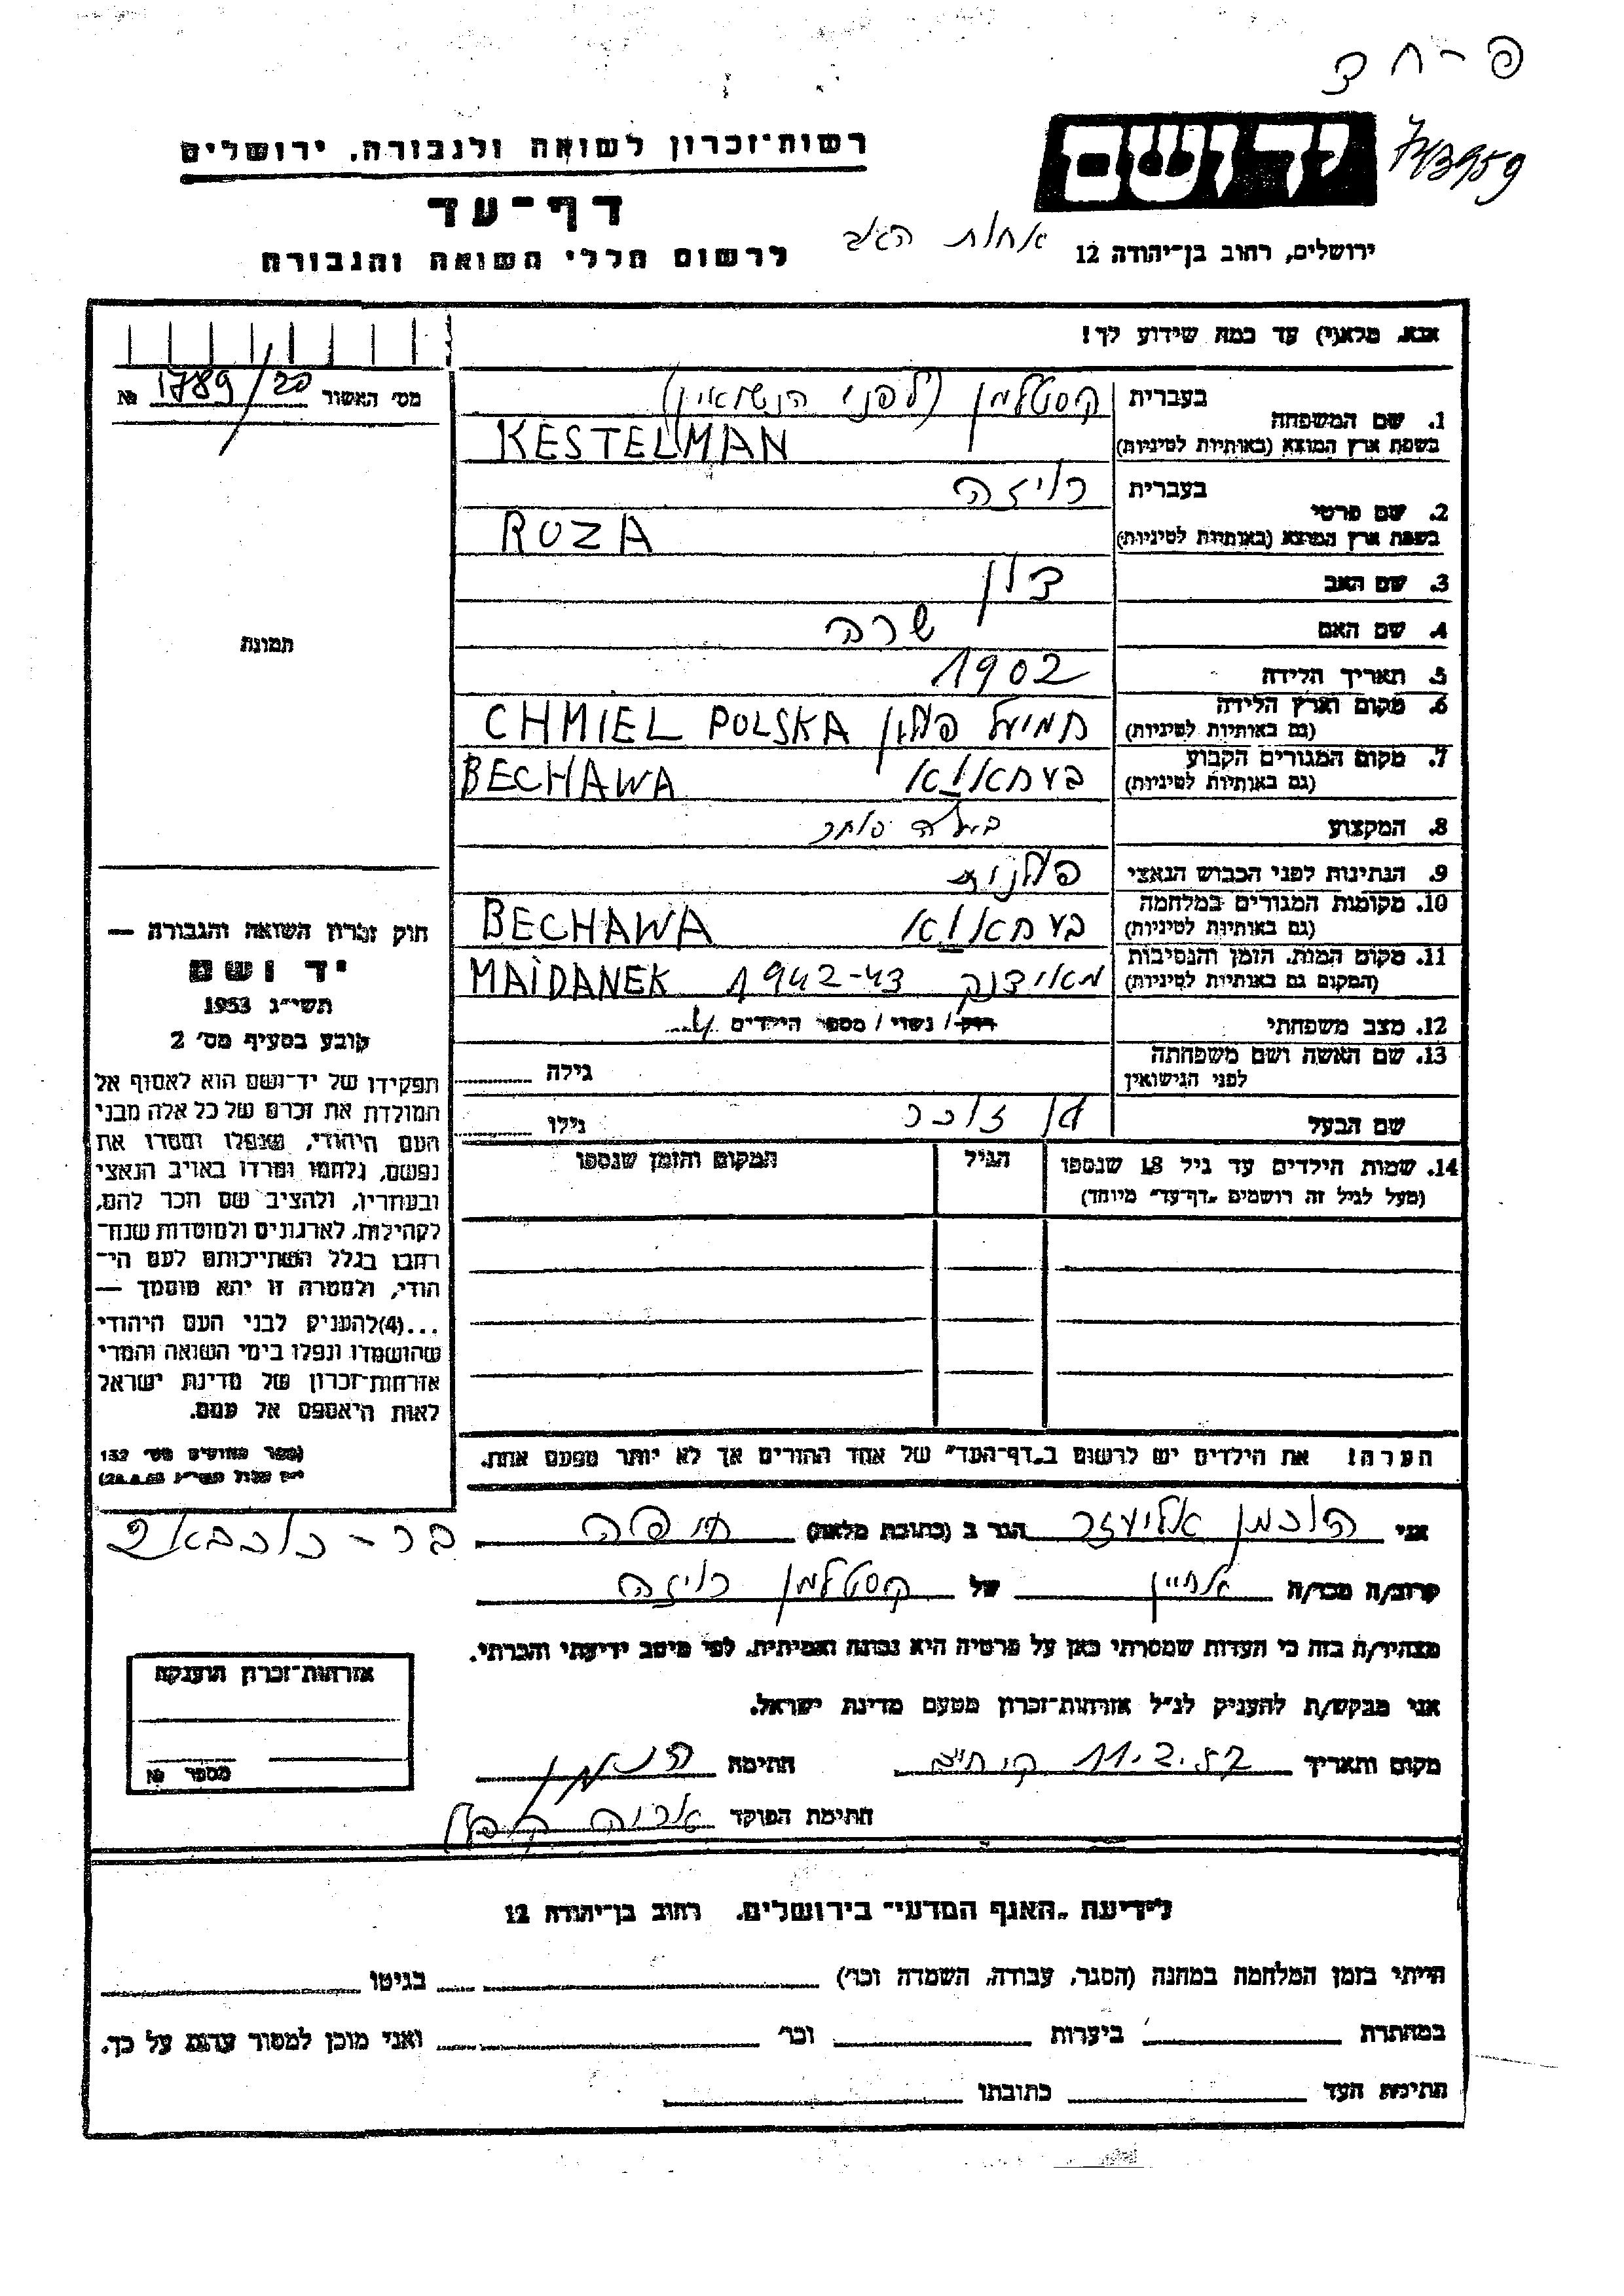 פ-ח צ
יד ושם
רשות-זכרון לשואה ולגבורה, ירושלים
דף-עד
ירושלים, רחוב בן-יהודה 12
אחות האב
לרשום חללי השואה והגבורה
אנא, מלא(י) עד כמה שידוע לך!
מס' האשור 1789/20 №
1. שם המשפחה בעברית קסטלמן (לפני הנשואין)
בשפת ארץ המוצא (באותיות לטיניות) KESTELMAN
2. שם פרטי בעברית רויזה
בשפת ארץ המוצא (באותיות לטיניות) ROZA
3. שם האב
4. שם האם שרה
5. תאריך הלידה 1902
6. מקום וארץ הלידה (גם באותיות לטיניות) חמיעל פולין CHMIEL POLSKA
7. מקום המגורים הקבוע (גם באותיות לטיניות) בעחאווא BECHAWA
8. המקצוע
9. הנתינות לפני הכבוש הנאצי פולנית
10. מקומות המגורים במלחמה (גם באותיות לטיניות) בעחאווא BECHAWA
11. מקום המות, הזמן והנסיבות (המקום גם באותיות לטיניות) מאידנק 1942-43 MAIDANEK
12. מצב משפחתי רוק/ נשוי/ מספר הילדים 4
13. שם האשה ושם משפחתה לפני הנישואין גילה
שם הבעל גילו
14. שמות הילדים עד גיל 18 שנספו (מעל לגיל זה רושמים "דף-עד" מיוחד)
הגיל
המקום והזמן שנספו
הערה! את הילדים יש לרשום ב"דף-העד" של אחד ההורים אך לא יותר מפעם אחת.
תמונה
חוק זכרון השואה והגבורה —
יד ושם
תשי"ג 1953
קובע בסעיף מס' 2
תפקידו של יד-ושם הוא לאסוף אל
המולדת את זכרם של כל אלה מבני
העם היהודי, שנפלו ומסרו את
נפשם, נלחמו ומרדו באויב הנאצי
ובעוזריו, ולהציב שם וזכר להם,
לקהילות, לארגונים ולמוסדות שנח-
רבו בגלל השתייכותם לעם הי-
הודי, ולמטרה זו יהא מוסמך —
...(4)להעניק לבני העם היהודי
שהושמדו ונפלו בימי השואה והמרי
אזרחות-זכרון של מדינת ישראל
לאות היאספם אל עמם.
(ספר החוקים מס' 132
אני הוכמן אליעזר הגר ב (כתובת מלאה) חיפה בר-כוכבא
קרוב/ה מכר/ה אחיין של קסטלמן רויזה
מצהיר/ה בזה כי העדות שמסרתי כאן על פרטיה היא נכונה ואמיתית, לפי מיטב ידיעתי והכרתי.
אני מבקש/ת להעניק לנ"ל אזרחות-זכרון מטעם מדינת ישראל.
מקום ותאריך 11.2.57 חתימה
חתימת הפוקד
אזרחות-זכרון הוענקה
מספר №
לידיעת "האגף המדעי" בירושלים, רחוב בן-יהודה 12
הייתי בזמן המלחמה במחנה (הסגר, עבודה, השמדה וכו') בגיטו
במחתרת ביערות וכו' ואני מוכן למסור עדות על כך.
חתימת העד כתובתו